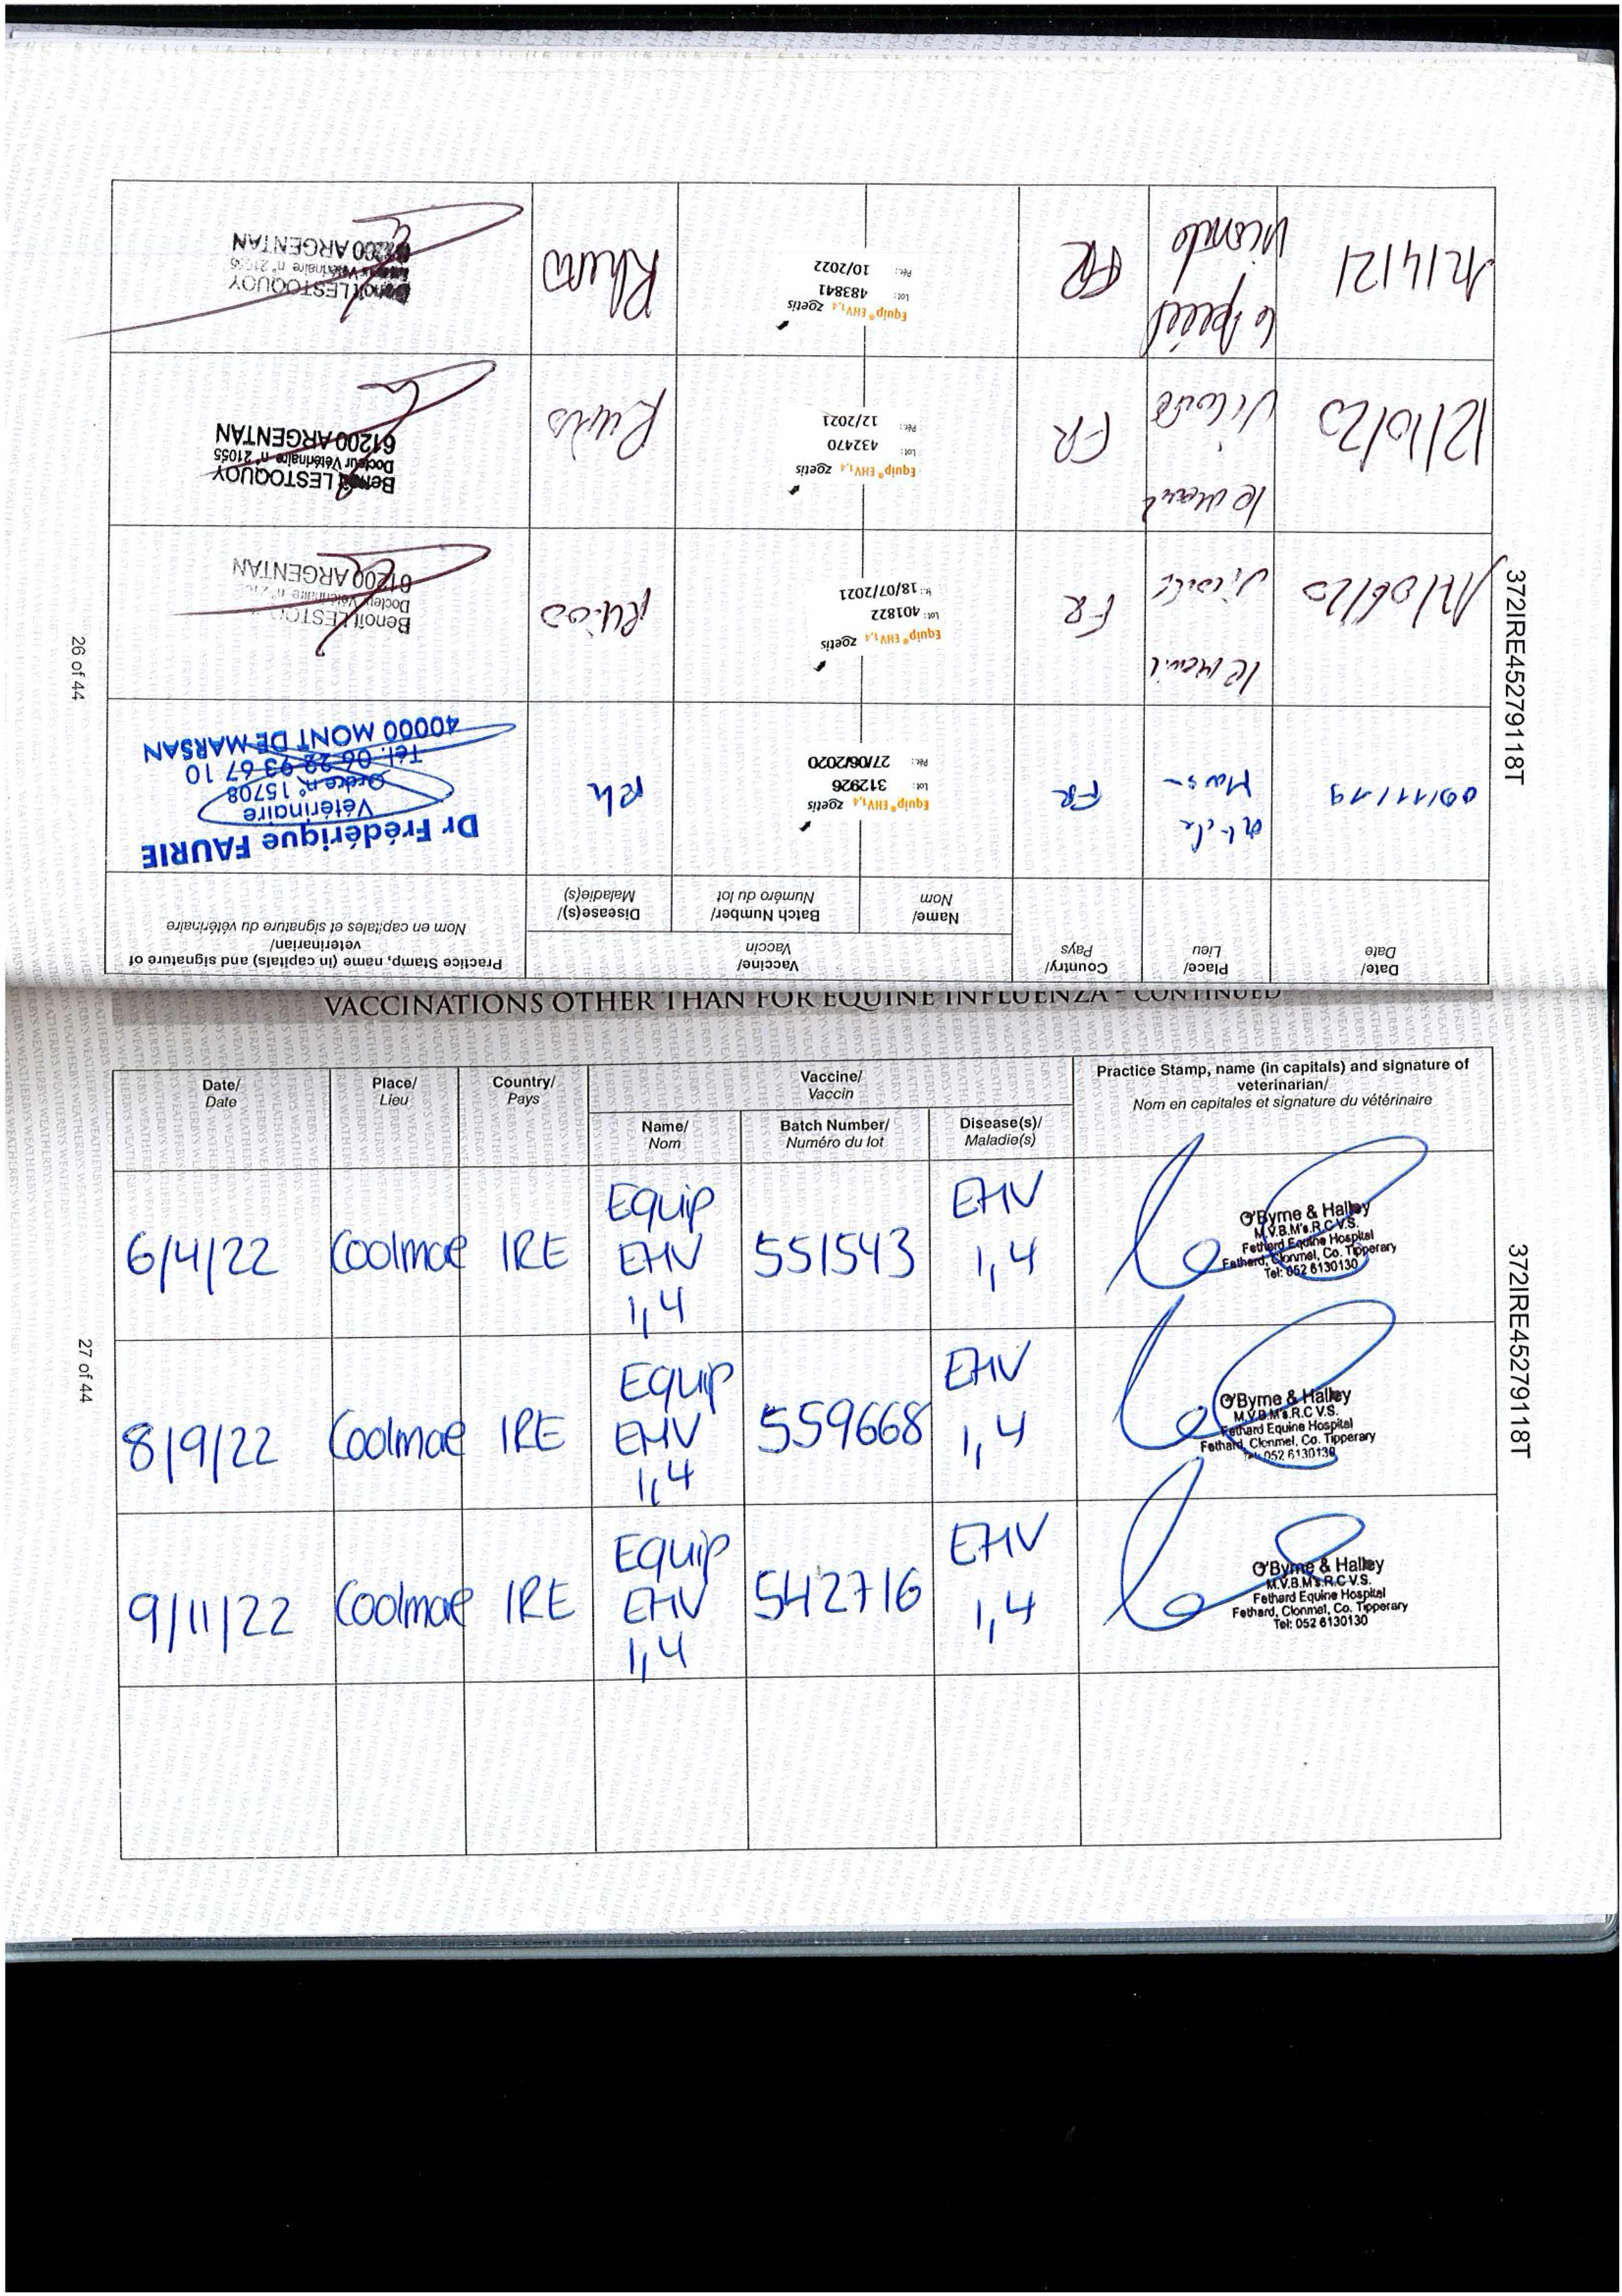 Practice Stamp, name (in capitals) and signature of
veterinarian/
Nom en capitales et signature du vétérinaire
Date/
Date
Place/
Lieu
Country/
Pays
Vaccine/
Vaccin
Name/
Nom
Batch Number/
Numéro du lot
Disease(s)/
Maladie(s)
09/11/19
FR
Equip® EHV1,4 zoetis
Lot: 312926
Pér.: 27/06/2020
Rh
Dr Frédérique FAURIE
Vétérinaire
Ordre n° 15708
Tél. 06 22 93 67 10
40000 MONT DE MARSAN
FR
Equip® EHV1,4 zoetis
Lot: 401822
18/07/2021
Benoît
Docteur Vétérinaire n°
61200 ARGENTAN
12/10/20
FR
Equip® EHV1,4 zoetis
Lot: 432470
Pér.: 12/2021
Benoît LESTOQUOY
Docteur Vétérinaire n° 21055
61200 ARGENTAN
12/4/21
FR
Equip® EHV1,4 zoetis
Lot: 483841
Pér.: 10/2022
Rhino
LESTOQUOY
Vétérinaire n° 21055
61200 ARGENTAN
26 of 44
372IRE45279118T
VACCINATIONS OTHER THAN FOR EQUINE INFLUENZA - CONTINUED
Date/
Date
Place/
Lieu
Country/
Pays
Vaccine/
Vaccin
Name/
Nom
Batch Number/
Numéro du lot
Disease(s)/
Maladie(s)
Practice Stamp, name (in capitals) and signature of
veterinarian/
Nom en capitales et signature du vétérinaire
6/4/22 Coolmore IRE Equip EHV 1,4 551543 EHV 1,4
O'Byrne & Halley
M.V.B.M's.R.C.V.S.
Fethard Equine Hospital
Fethard, Clonmel, Co. Tipperary
Tel: 052 6130130
8/9/22 Coolmore IRE Equip EHV 1,4 559668 EHV 1,4
O'Byrne & Halley
M.V.B.M's.R.C.V.S.
Fethard Equine Hospital
Fethard, Clonmel, Co. Tipperary
Tel: 052 6130130
9/11/22 Coolmore IRE Equip EHV 1,4 542716 EHV 1,4
O'Byrne & Halley
M.V.B.M's.R.C.V.S.
Fethard Equine Hospital
Fethard, Clonmel, Co. Tipperary
Tel: 052 6130130
27 of 44
372IRE45279118T